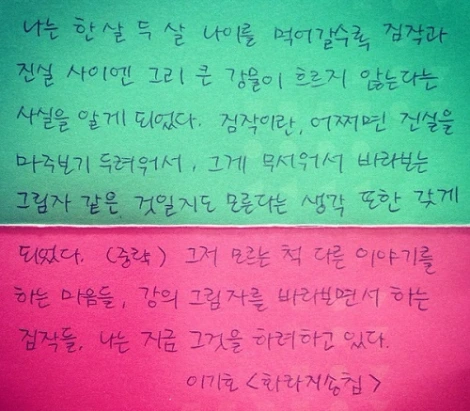 나는 한살 두 살 나이를 먹어갈수록 짐작과
진실 사이엔 그리 큰 강물이 흐르지 않는다는
사실을 알게 되었다. 짐작이란, 어쩌면 진실을
마주보기 두려워서, 그게 무서워서 바라보는
그림자 같은 것일지도 모른다는 생각 또한 갖게
되었다. (중략) 그저 모르는 척 다른 이야기를
하는 마음들, 강의 그림자를 바라보면서 하는
짐작들, 나는 지금 그것을 하려하고 있다.
이기호 <화라지송침>